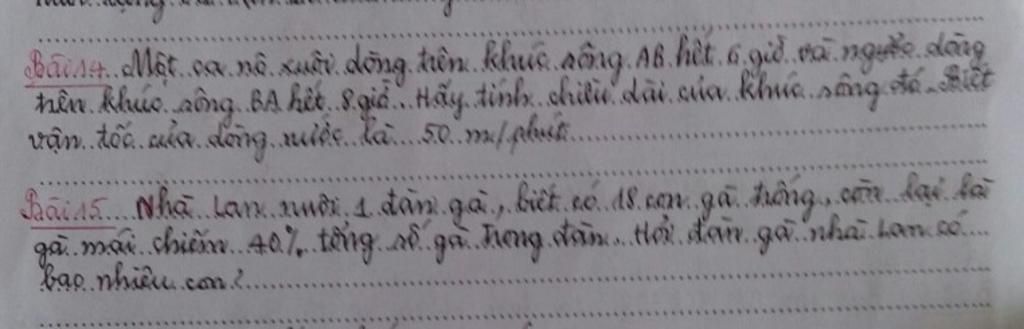 Bài 14. Một ca nô xuôi dòng trên khúc sông AB hết 6 giờ và ngược dòng
trên khúc sông BA hết 8 giờ. Hãy tính chiều dài của khúc sông đó. Biết
vận tốc của dòng nước là 50 m/phút
Bài 15. Nhà Lan nuôi 1 đàn gà, biết có 18 con gà trống, còn lại là
gà mái chiếm 40% tổng số gà trong đàn. Hỏi đàn gà nhà Lan có
bao nhiêu con?